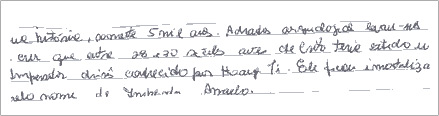 na história, somente 5 mil anos. Achados arqueológicos levam-nos
crer que entre 28 e 30 séculos antes de Cristo teria existido um
Imperador chinês conhecido por Hoang Ti. Ele ficou imortaliza
pelo nome de Imperador Amarelo.